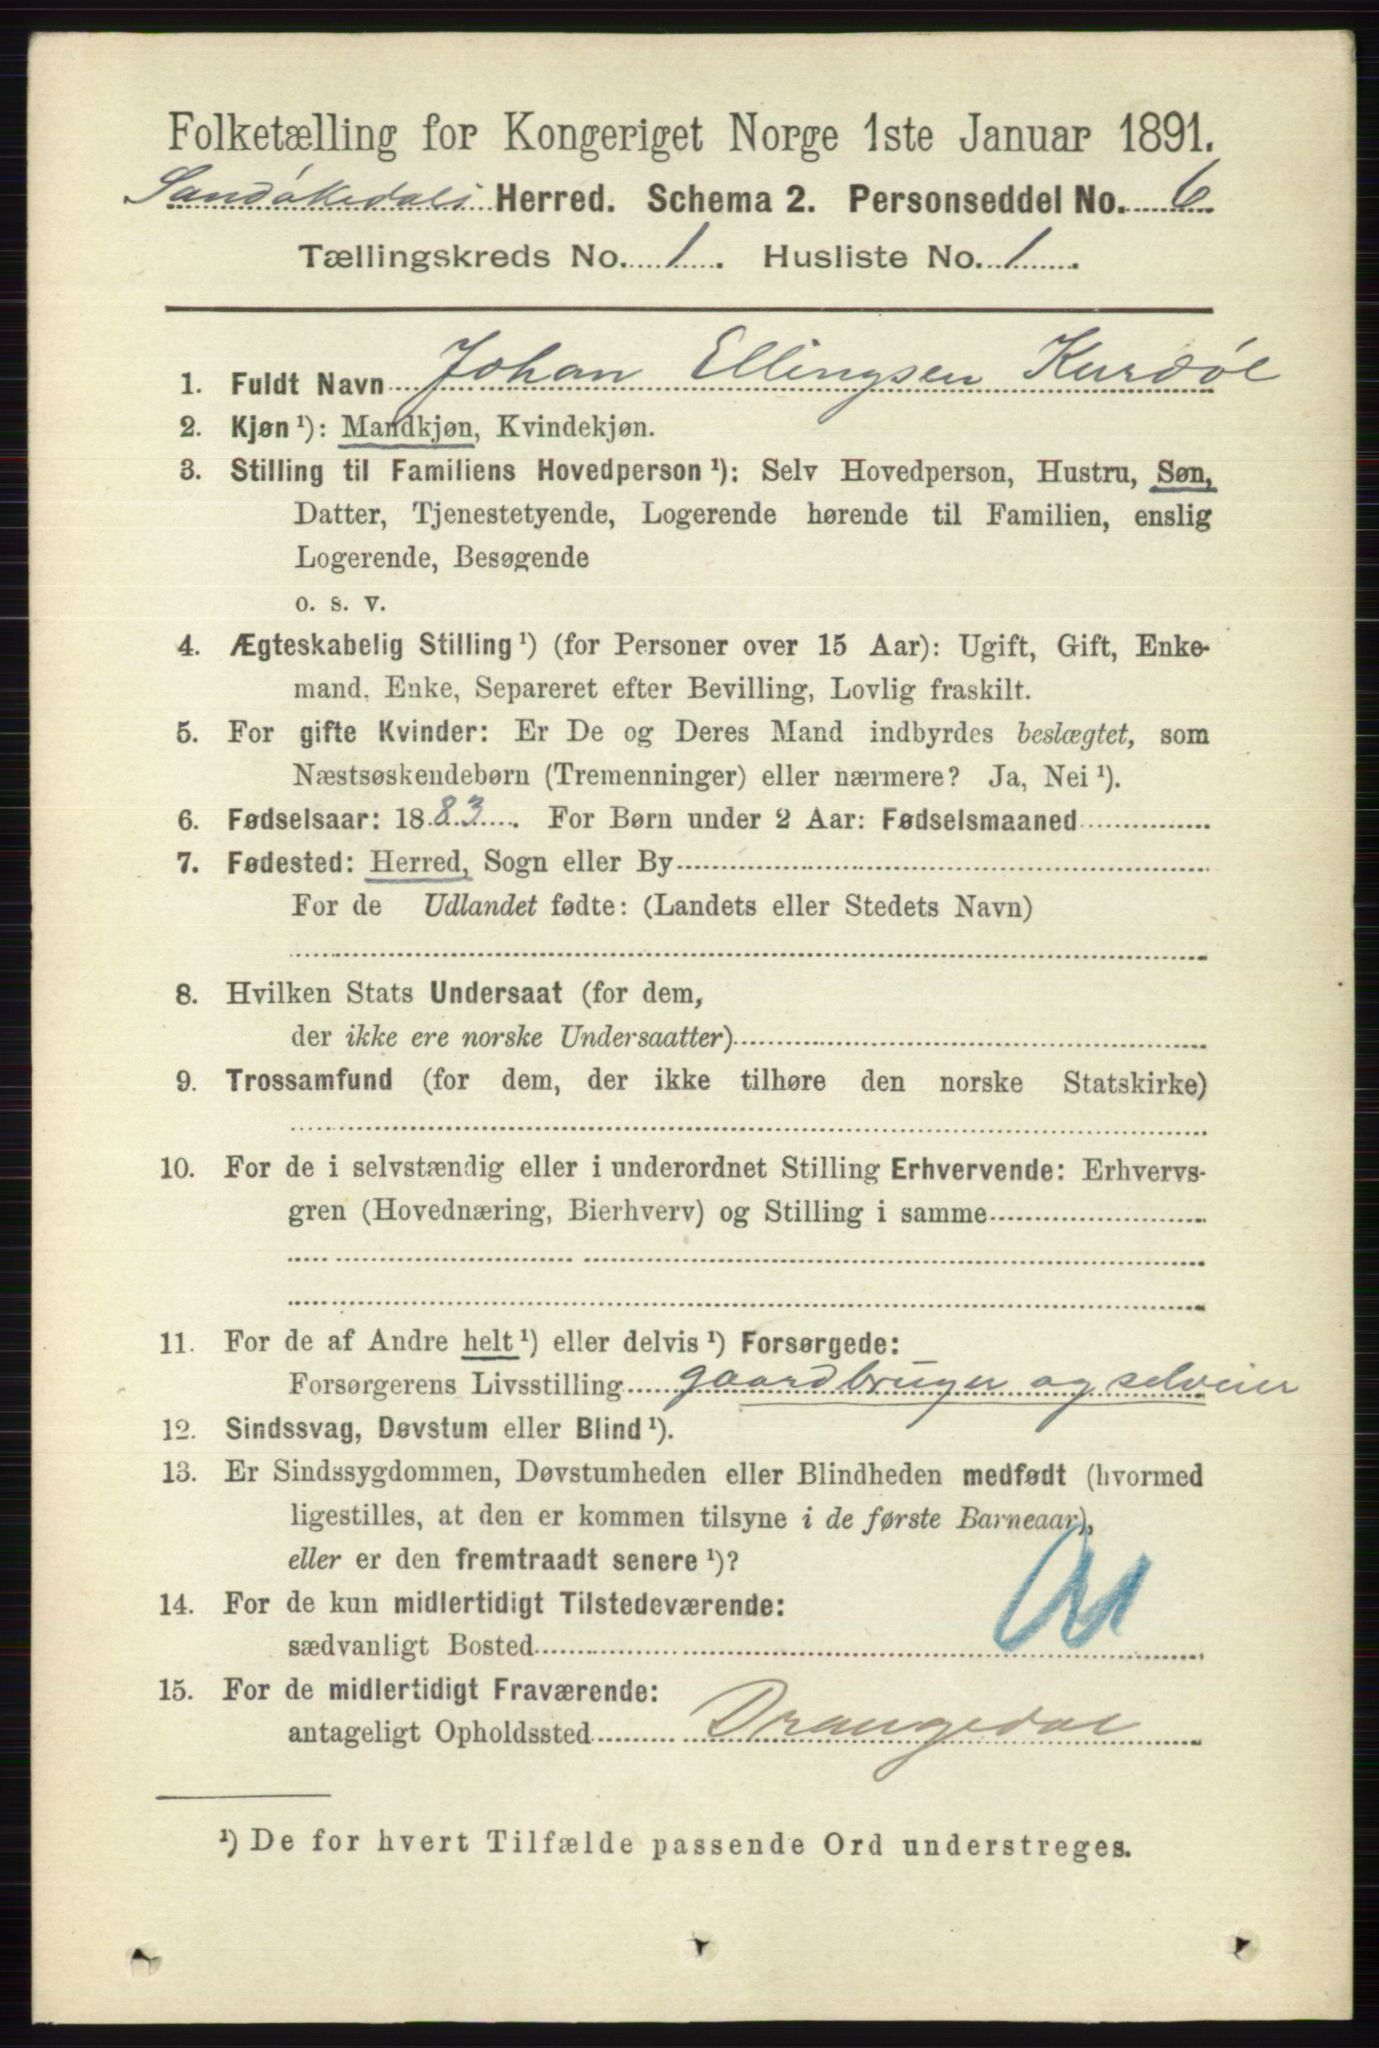 Folketælling for Kongeriget Norge 1ste Januar 1891.
Sandøkedals Herred. Schema 2. Personseddel No. 6
Tællingskreds No. 1. Husliste No. 1
1. Fuldt Navn Johan Ellingsen Kurdøl
2. Kjøn ¹): Mandkjøn, Kvindekjøn.
3. Stilling til Familiens Hovedperson ¹): Selv Hovedperson, Hustru, Søn,
Datter, Tjenestetyende, Logerende hørende til Familien, enslig
Logerende, Besøgende
o. s. v.
4. Ægteskabelig Stilling ¹) (for Personer over 15 Aar): Ugift, Gift, Enke-
mand, Enke, Separeret efter Bevilling, Lovlig fraskilt.
5. For gifte Kvinder: Er De og Deres Mand indbyrdes beslægtet, som
Næstsøskendebørn (Tremenninger) eller nærmere? Ja, Nei ¹).
6. Fødselsaar: 1883. For Børn under 2 Aar: Fødselsmaaned
7. Fødested: Herred, Sogn eller By
For de Udlandet fødte: (Landets eller Stedets Navn)
8. Hvilken Stats Undersaat (for dem,
der ikke ere norske Undersaatter)
9. Trossamfund (for dem, der ikke tilhøre den norske Statskirke)
10. For de i selvstændig eller i underordnet Stilling Erhvervende: Erhvervs-
gren (Hovednæring, Bierhverv) og Stilling i samme
11. For de af Andre helt ¹) eller delvis ¹) Forsørgede:
Forsørgerens Livsstilling gaardbruger og selveier
12. Sindssvag, Døvstum eller Blind ¹).
13. Er Sindssygdommen, Døvstumheden eller Blindheden medfødt (hvormed
ligestilles, at den er kommen tilsyne i de første Barneaar),
eller er den fremtraadt senere ¹)?
14. For de kun midlertidigt Tilstedeværende:
sædvanligt Bosted
15. For de midlertidigt Fraværende:
antageligt Opholdssted Drangedal
¹) De for hvert Tilfælde passende Ord understreges.